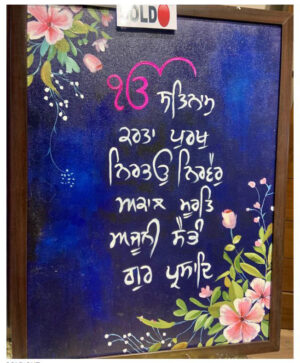 SOLD
ੴ ਸਤਿਨਾਮ
ਕਰਤਾ ਪੁਰਖੁ
ਨਿਰਭਉ ਨਿਰਵੈਰੁ
ਅਕਾਲ ਮੂਰਤਿ
ਅਜੂਨੀ ਸੈਭੰ
ਗੁਰ ਪ੍ਰਸਾਦਿ